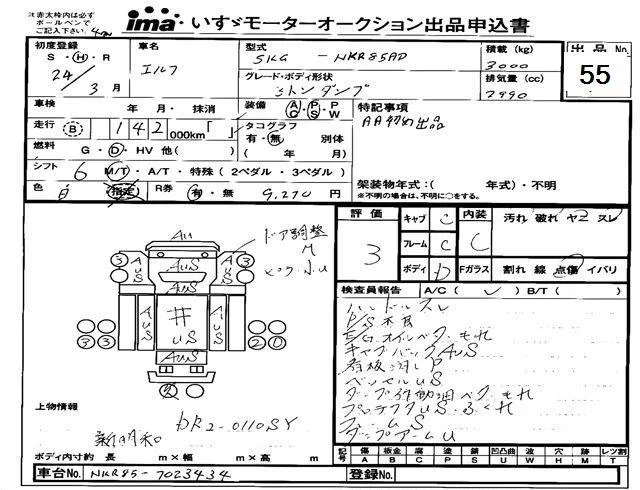 注赤太枠内は必ず
ボールペンで
ご記入下さい。
ima いすゞモーターオークション出品申込書
初度登録
S・H・R
24年
3月
車名
エルフ
型式
SKG-NKR85AD
積載(kg)
3000
グレード・ボディ形状
3トンダンプ
排気量(cc)
2990
出品No
55
車検
年 月・抹消
装備
A C・P S・P W
特記事項
AA初め出品
走行
B 142 000km「 」
タコグラフ
有・無 別体
( 年 月)
燃料
G・D・HV 他( )
シフト
6 M/T・A/T・特殊(2ペダル・3ペダル)
色
白 指定
R券
有・無 9,270円
架装物年式:( 年式)・不明
※不明の場合は、不明に○をする。
評価
3
キャブ C
フレーム C
ボディ D
内装
C
汚れ 破れ ヤニ スレ
Fガラス 割れ 線 点傷 イバリ
検査員報告 A/C( ✓ )B/T( )
ハンドルスレ
P/S不良
E/Gオイルベタモれ
キャブバックAuS
看板消しP
ベッセルuS
ダンプ作動油ベタモれ
プロテクタuS・ふくれ
フレームS
ダンプアームU
ドア調整
M
AU
3 3
AUS
AUS
3 3
井
uS
AuS
3 3
2 2
上物情報
新明和
DR2-0110SY
ボディ内寸約 長 m×幅 m×高 m
車台No. NKR85-7023434
登録No.
記号 傷 板金 腐 塗 錆 凹凸曲 波 穴 跡 レツ割
A B C P S U W H M T